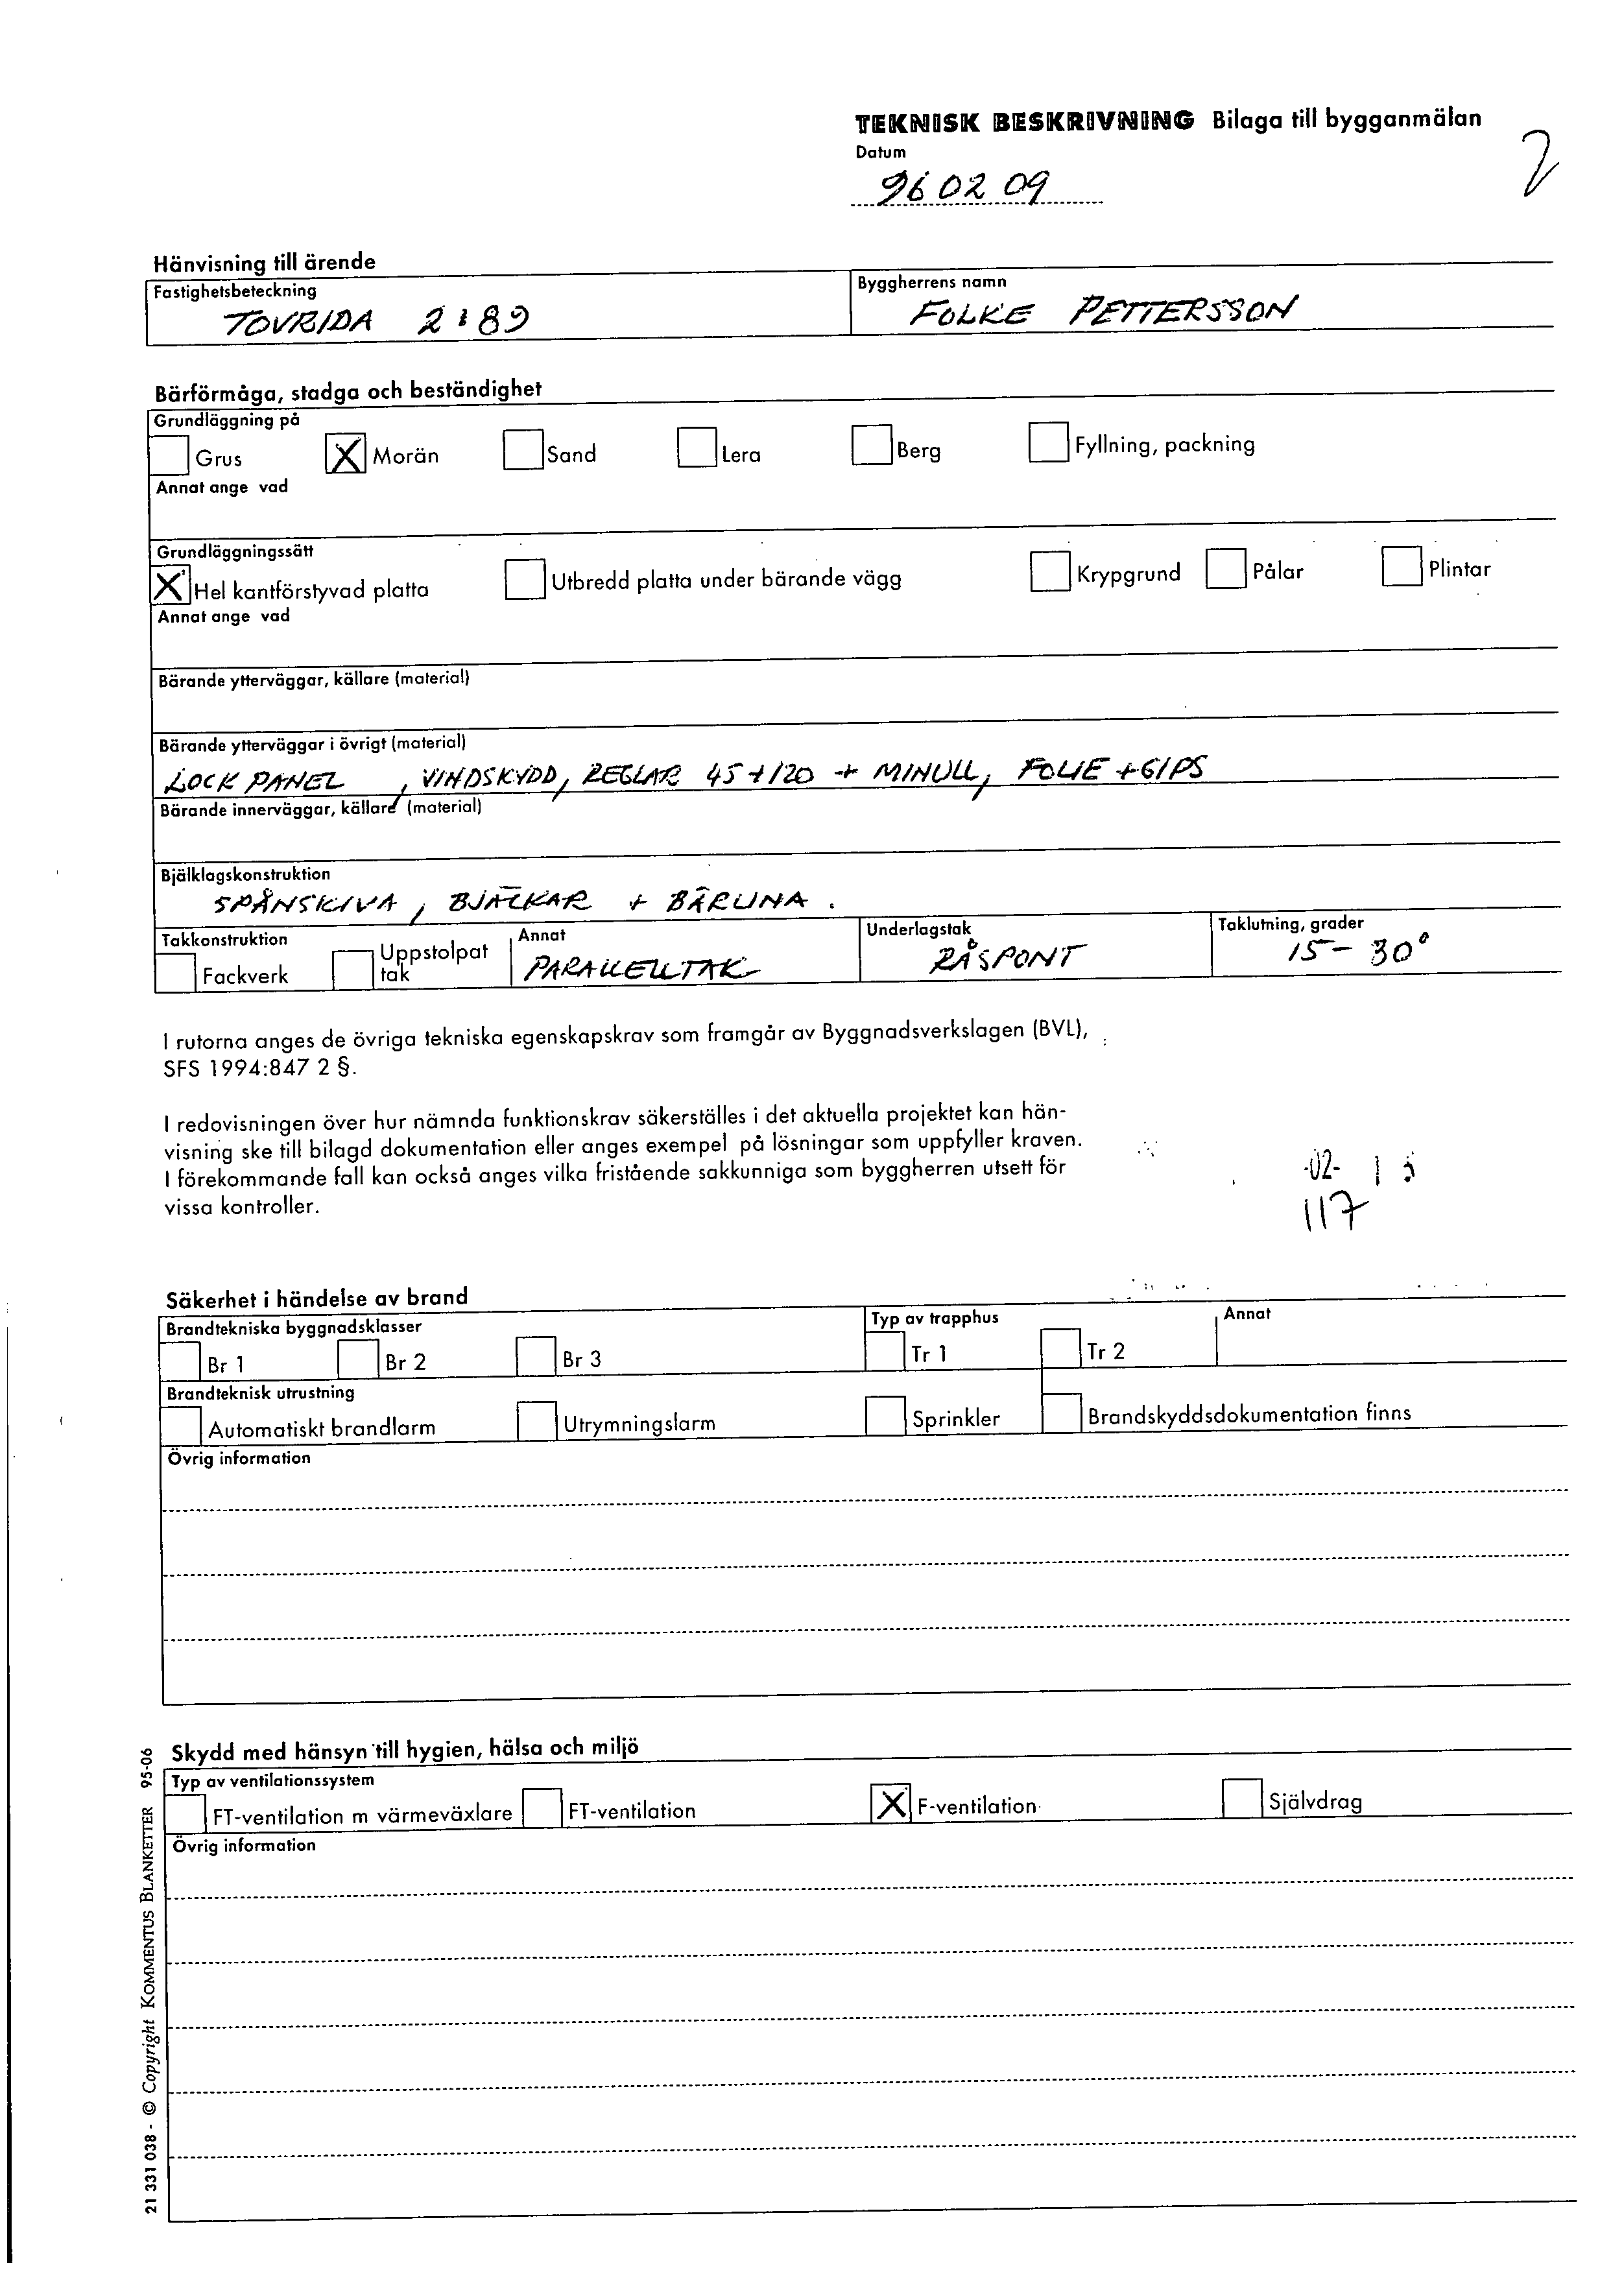 TEKNISK BESKRIVNING Bilaga till bygganmälan
Datum
2
96 02 09
Hänvisning till ärende
Fastighetsbeteckning
Byggherrens namn
TOVRIDA 2:89
FOLKE PETTERSSON
Bärförmåga, stadga och beständighet
Grundläggning på
Grus X Morän Sand Lera Berg Fyllning, packning
Annat ange vad
Grundläggningssätt
X Hel kantförstyvad platta Utbredd platta under bärande vägg Krypgrund Pålar Plintar
Annat ange vad
Bärande ytterväggar, källare (material)
Bärande ytterväggar i övrigt (material)
LOCKPANEL, VINDSKYDD, REGLAR 45+120 + MINULL, FOLIE + GIPS
Bärande innerväggar, källare (material)
Bjälklagskonstruktion
SPÅNSKIVA, BJÄLKAR + BÄRLINA.
Takkonstruktion Annat Underlagstak Taklutning, grader
Fackverk Uppstolpat tak PARALLELLTAK RÅSPONT 15 - 30°
I rutorna anges de övriga tekniska egenskapskrav som framgår av Byggnadsverkslagen (BVL),
SFS 1994:847 2 §.
I redovisningen över hur nämnda funktionskrav säkerställes i det aktuella projektet kan hän-
visning ske till bilagd dokumentation eller anges exempel på lösningar som uppfyller kraven.
I förekommande fall kan också anges vilka fristående sakkunniga som byggherren utsett för
vissa kontroller.
-02- 1
117
Säkerhet i händelse av brand
Brandtekniska byggnadsklasser Typ av trapphus Annat
Br 1 Br 2 Br 3 Tr 1 Tr 2
Brandteknisk utrustning
Automatiskt brandlarm Utrymningslarm Sprinkler Brandskyddsdokumentation finns
Övrig information
Skydd med hänsyn till hygien, hälsa och miljö
Typ av ventilationssystem
FT-ventilation m värmeväxlare FT-ventilation X F-ventilation Självdrag
Övrig information
21 331 038 - © Copyright KOMMENTUS BLANKETTER 95-06